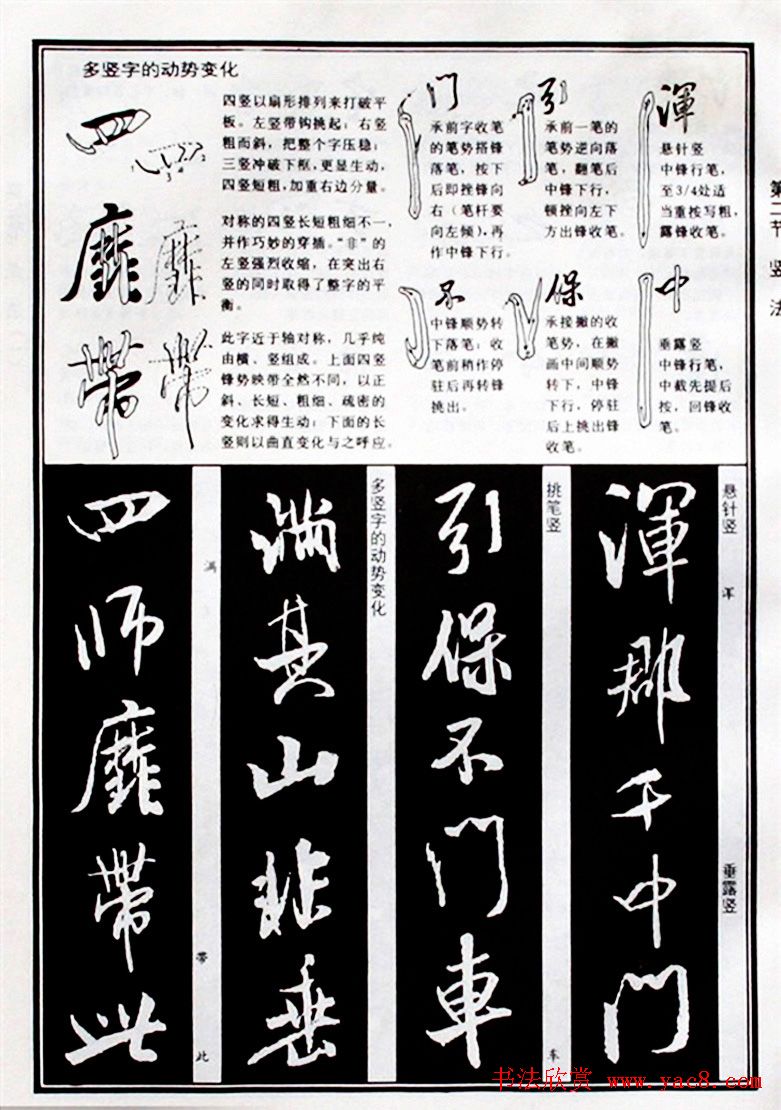 多竖字的动势变化
四竖以扇形排列来打破平
板。左竖带钩挑起；右竖
粗而斜，把整个字压稳；
三竖冲破下框，更显生动，
四竖短粗，加重右边分量。
对称的四竖长短粗细不一，
并作巧妙的穿插。“非”的
左竖强烈收缩，在突出右
竖的同时取得了整字的平
衡。
此字近于轴对称，几乎纯
由横、竖组成。上面四竖
锋势映带全然不同，以正
斜、长短、粗细、疏密的
变化求得生动；下面的长
竖则以曲直变化与之呼应。
四
靡
带
门
承前字收笔
的笔势搭锋
落笔，按下
后即挫锋向
右（笔杆要
向左倾），再
作中锋下行。
引
承前一笔的
笔势逆向落
笔，翻笔后
中锋下行，
顿挫向左下
方出锋收笔。
渾
悬针竖
中锋行笔，
至3/4处适
当重按写粗，
露锋收笔。
不
中锋顺势转
下落笔；收
笔前稍作停
驻后再转锋
挑出。
保
承接撇的收
笔势，在撇
画中间顺势
转下，中锋
下行，停驻
后上挑出锋
收笔。
中
垂露竖
中锋行笔，
中截先提后
按，回锋收
笔。
第二节 竖法
悬针竖
浑
垂露竖
渾郡千中門
挑笔竖
车
引保不門車
多竖字的动势变化
满其山非垂
满
带
此
四师靡帶此
书法欣赏 www.yac8.com